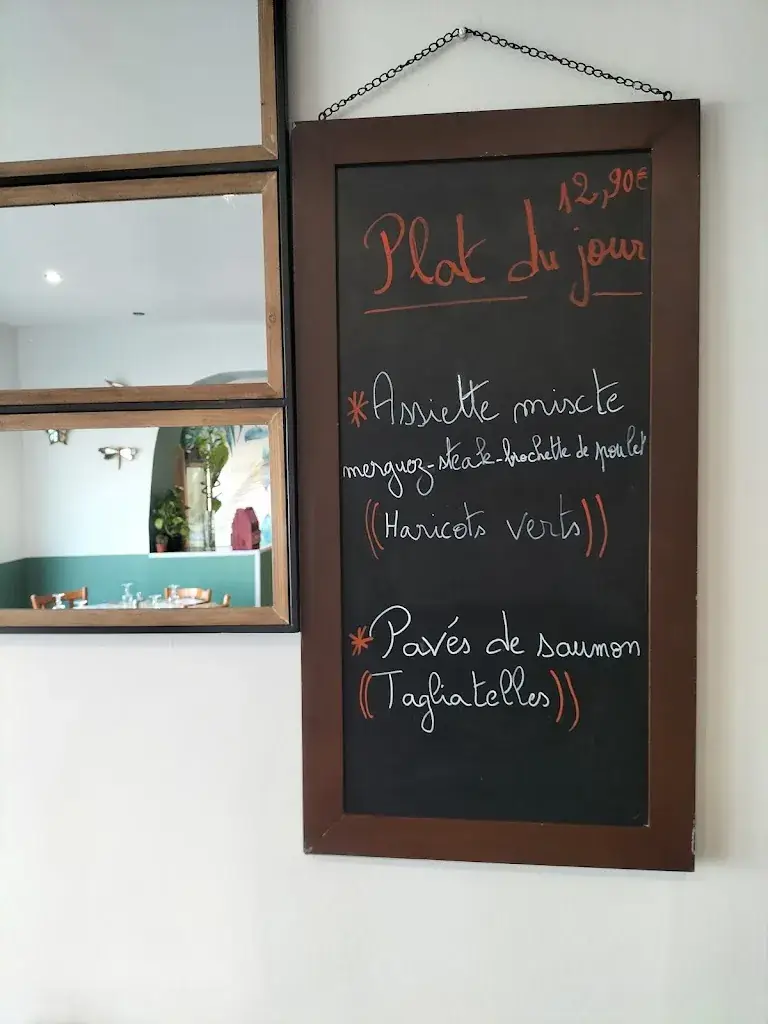 12,90€
Plat du jour
* Assiette mixte
merguez-steak-brochette de poulet
((Haricots verts))
* Pavés de saumon
((Tagliatelles))